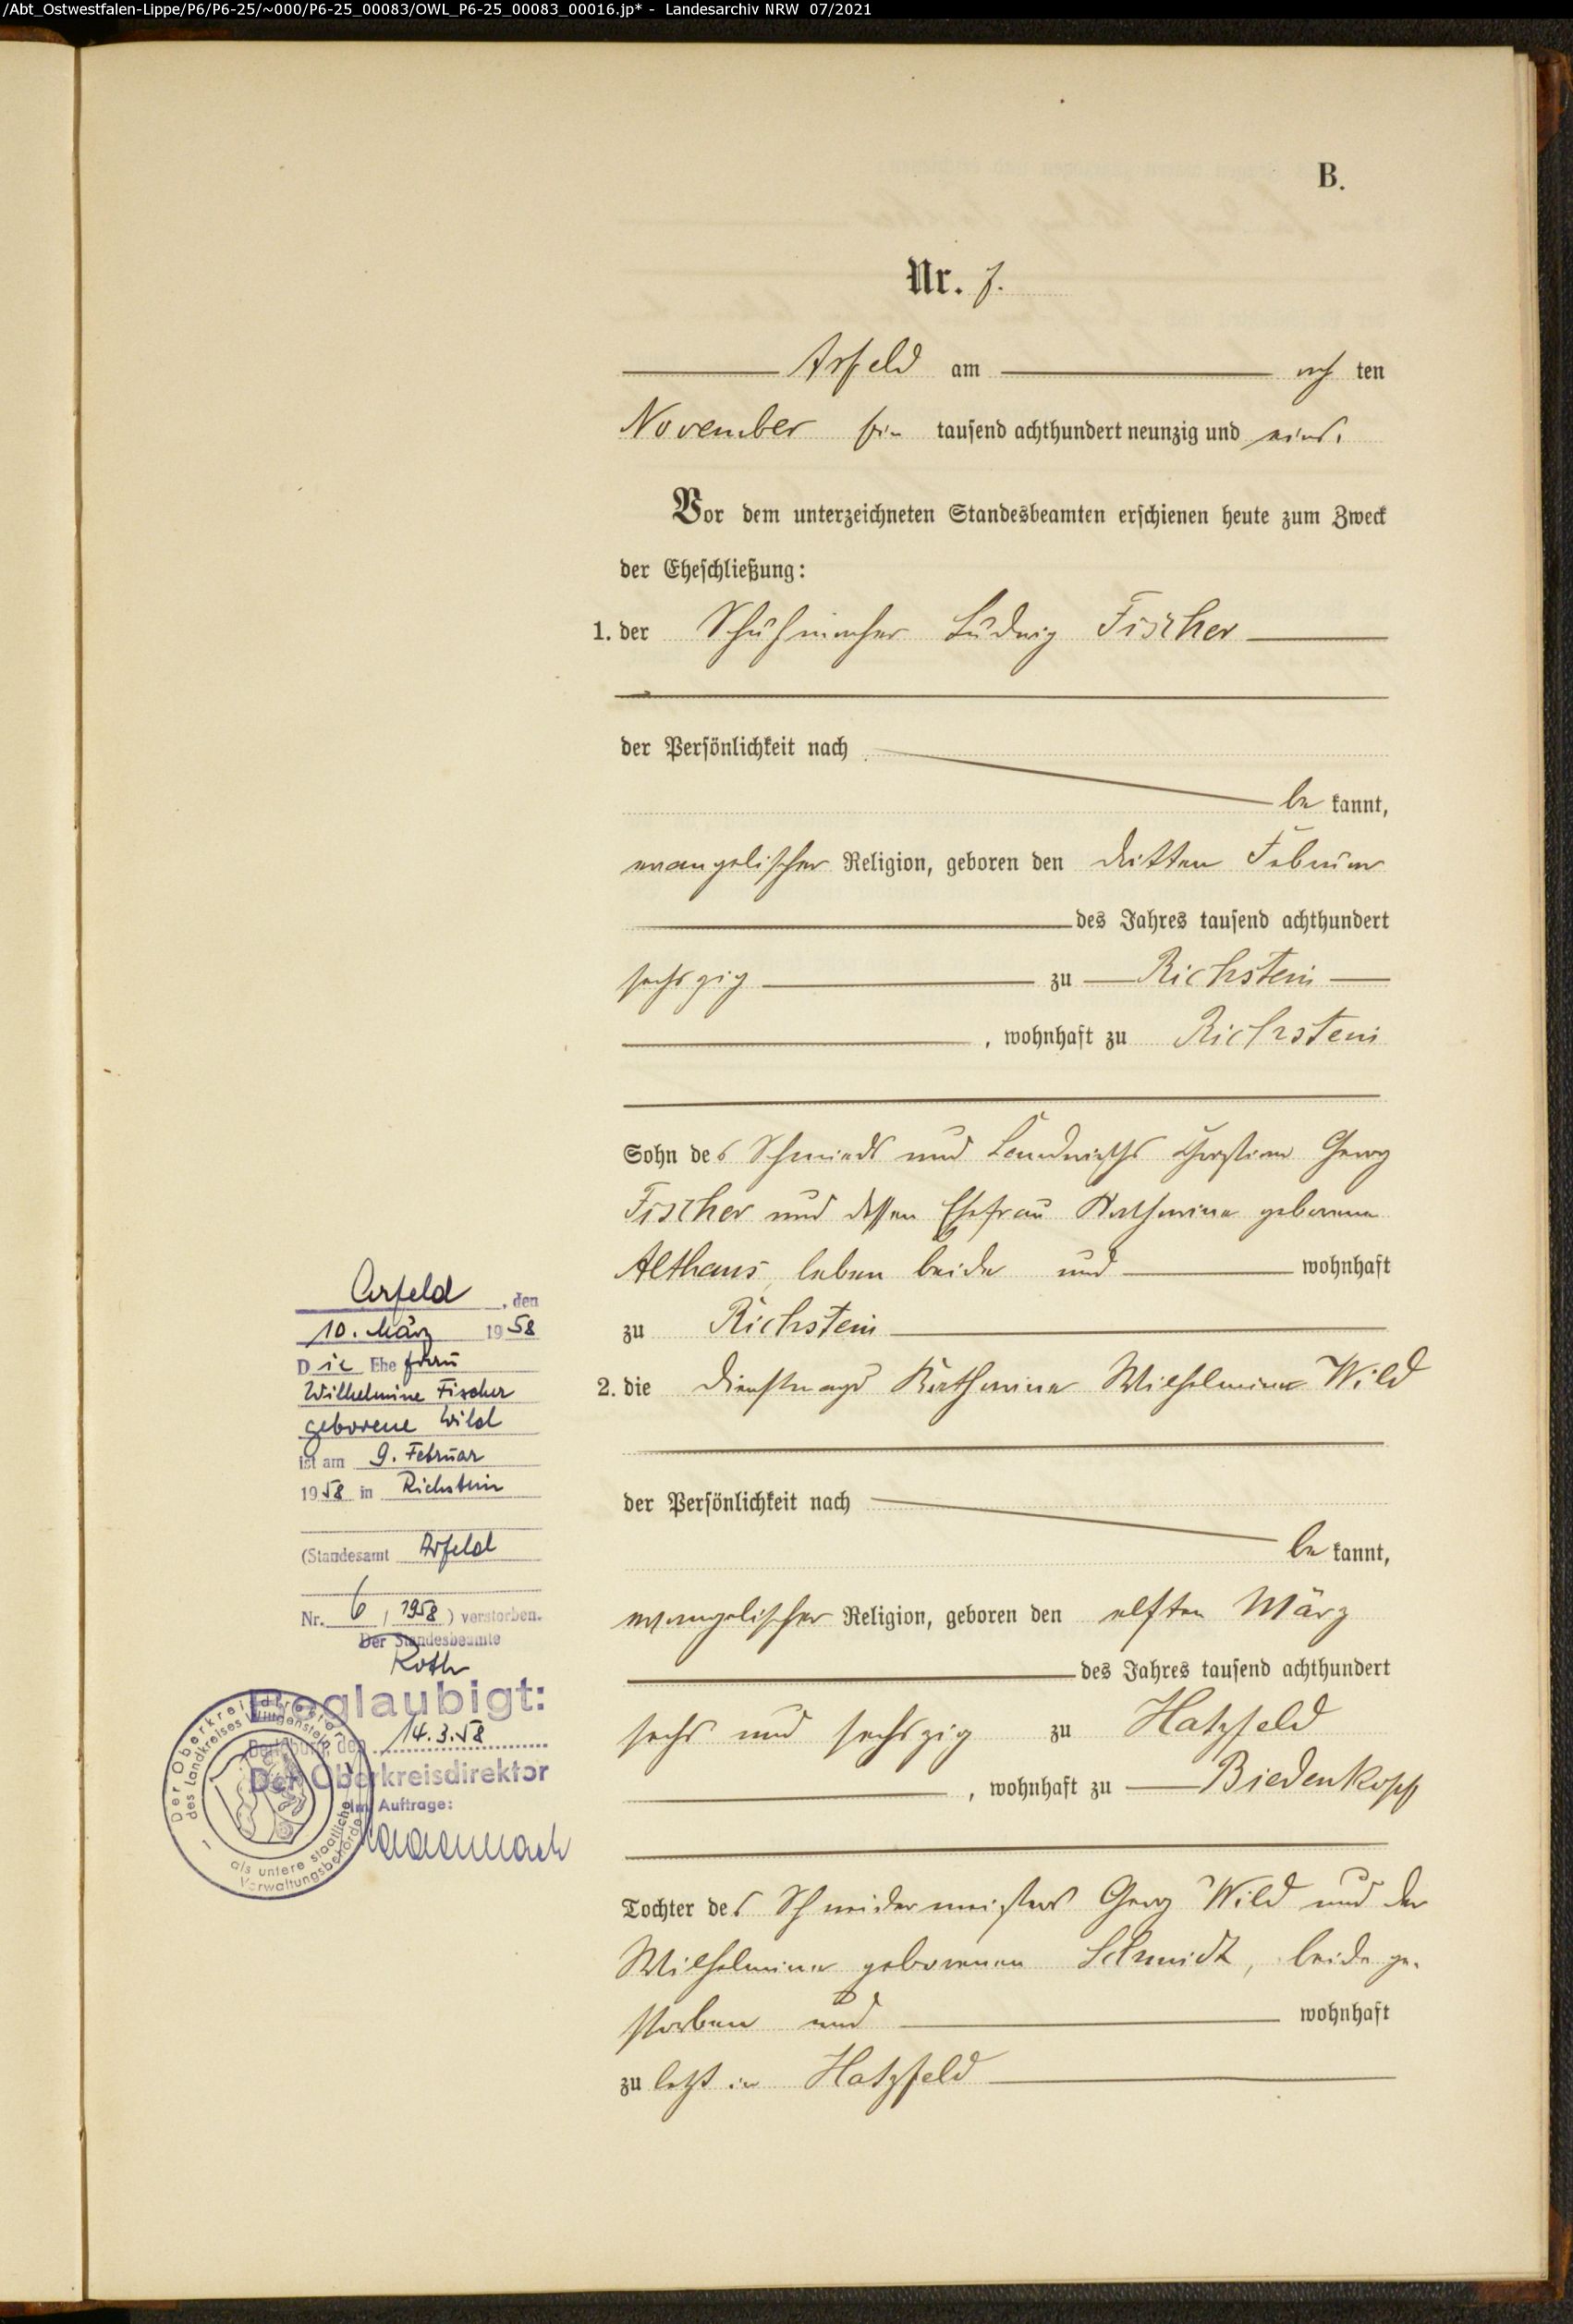 /Abt_Ostwestfalen-Lippe/P6/P6-25/~000/P6-25_00083/OWL_P6-25_00083_00016.jp* - Landesarchiv NRW 07/2021
B.
Nr. 7.
Arfeld am ach ten
November ein tausend achthundert neunzig und eins.
Vor dem unterzeichneten Standesbeamten erschienen heute zum Zweck
der Eheschließung:
1. der Schuhmacher Ludwig Fischer
der Persönlichkeit nach
be kannt,
evangelischer Religion, geboren den dritten Februar
des Jahres tausend achthundert
sechszig zu Richstein
, wohnhaft zu Richstein
Sohn des Schmieds und Landwirths Christian Georg
Fischer und dessen Ehefrau Katharina geborene
Althaus, leben beide und wohnhaft
zu Richstein
2. die Dienstmagd Katharina Wilhelmine Wild
der Persönlichkeit nach
be kannt,
evangelischer Religion, geboren den elften März
des Jahres tausend achthundert
sechs und sechszig zu Hatzfeld
, wohnhaft zu Biedenkopf
Tochter des Schneidermeisters Georg Wild und der
Wilhelmine geborenen Schmidt, beide ge-
storben und wohnhaft
zu letzt in Hatzfeld
Arfeld, den
10. März 1958
Die Ehefrau
Wilhelmine Fischer
geborene Wild
ist am 9. Februar
1958 in Richstein
(Standesamt Arfeld
Nr. 6 / 1958) verstorben.
Der Standesbeamte
Roth
Beglaubigt:
Berleburg, den 14.3.58
Der Oberkreisdirektor
Im Auftrage:
Der Oberkreisdirektor
des Landkreises Wittgenstein
als untere staatliche
Verwaltungsbehörde